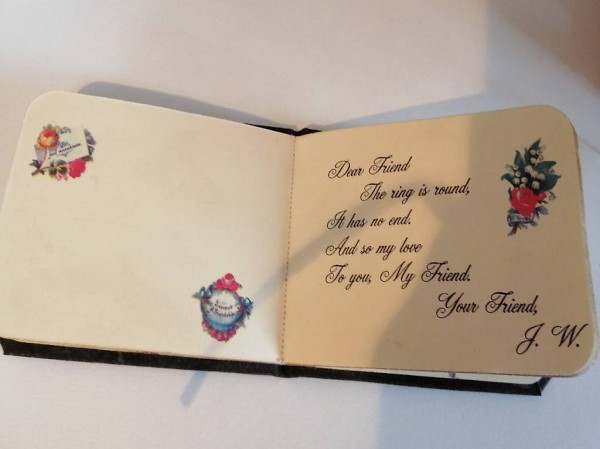 Dear Friend
The ring is round,
It has no end.
And so my love
To you, My Friend.
Your Friend,
J. W.